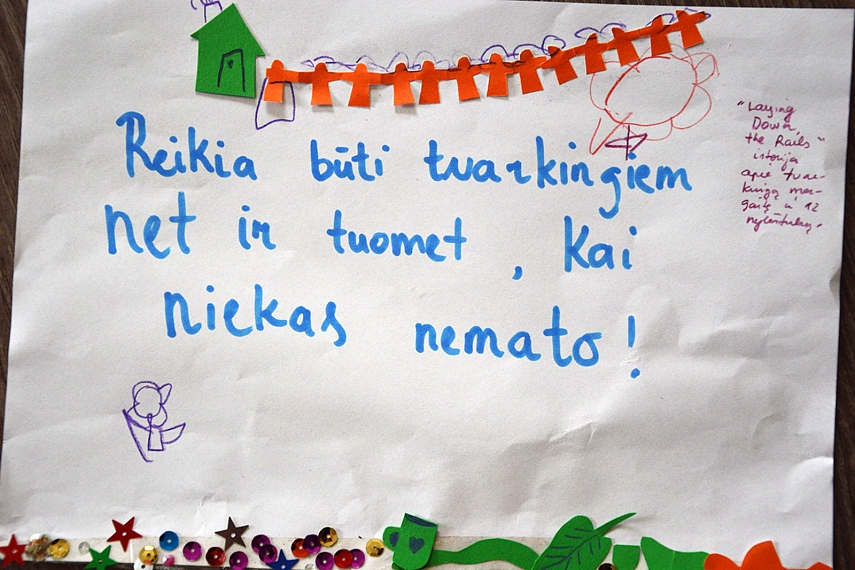 Reikia būti tvarkingiem
net ir tuomet, kai
niekas nemato!
"Laying
Down
the Rails"
istorija
apie tvar-
kingą mer-
gaitę ir 12
nykštukų.